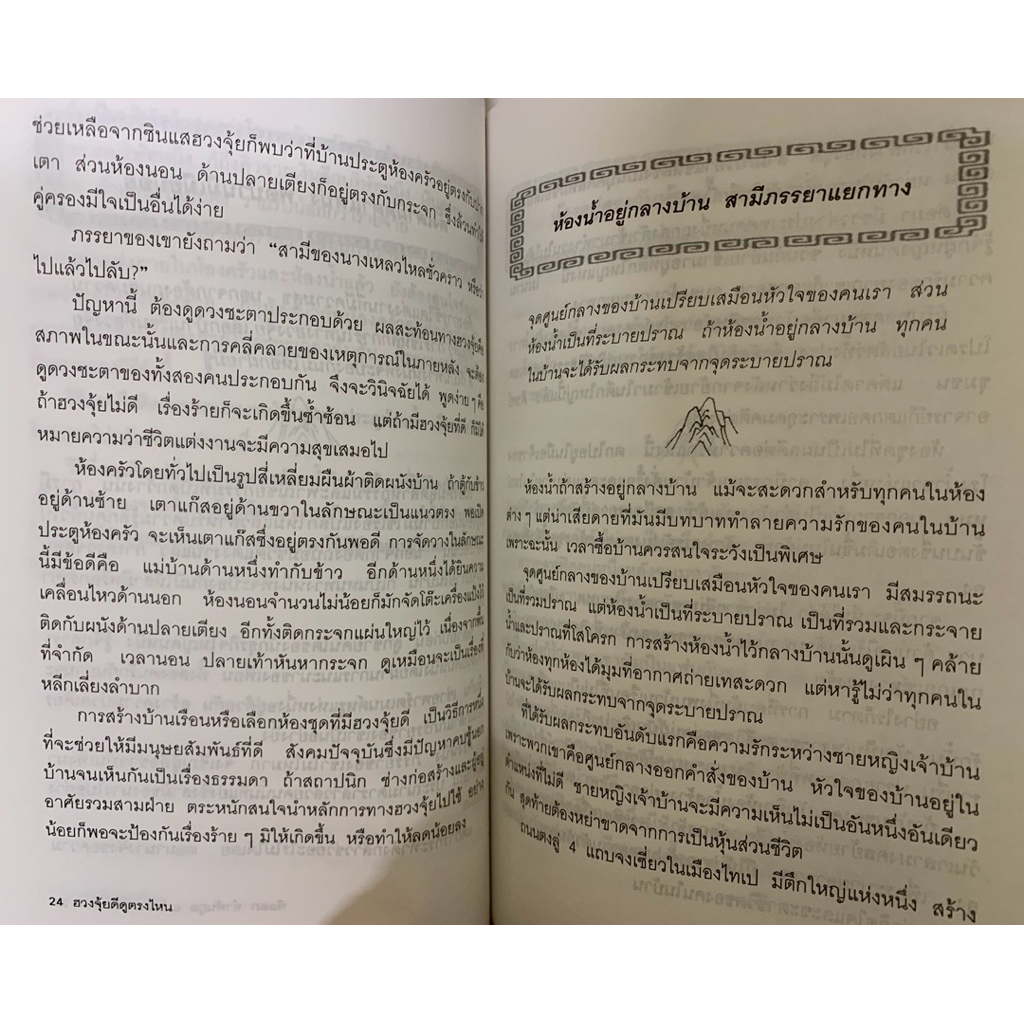 ช่วยเหลือจากซินแสฮวงจุ้ยก็พบว่าที่บ้านประตูห้องครัวอยู่ตรงกับ
เตา ส่วนห้องนอน ด้านปลายเตียงก็อยู่ตรงกับกระจก ซึ่งล้วนทำให้
คู่ครองมีใจเป็นอื่นได้ง่าย
ภรรยาของเขายังถามว่า “สามีของนางเหลวไหลชั่วคราว หรือว่า
ไปแล้วไปลับ?”
ปัญหานี้ ต้องดูดวงชะตาประกอบด้วย ผลสะท้อนทางฮวงจุ้ยคือ
สภาพในขณะนั้นและการคลี่คลายของเหตุการณ์ในภายหลัง จะต้อง
ดูดวงชะตาของทั้งสองคนประกอบกัน จึงจะวินิจฉัยได้ พูดง่าย ๆ คือ
ถ้าฮวงจุ้ยไม่ดี เรื่องร้ายก็จะเกิดขึ้นซ้ำซ้อน แต่ถ้ามีฮวงจุ้ยที่ดี ก็มิได้
หมายความว่าชีวิตแต่งงานจะมีความสุขเสมอไป
ห้องครัวโดยทั่วไปเป็นรูปสี่เหลี่ยมผืนผ้าติดผนังบ้าน ถ้าตู้กับข้าว
อยู่ด้านซ้าย เตาแก๊สอยู่ด้านขวาในลักษณะเป็นแนวตรง พอเปิด
ประตูห้องครัว จะเห็นเตาแก๊สซึ่งอยู่ตรงกันพอดี การจัดวางในลักษณะ
นี้มีข้อดีคือ แม่บ้านด้านหนึ่งทำกับข้าว อีกด้านหนึ่งได้ยินความ
เคลื่อนไหวด้านนอก ห้องนอนจำนวนไม่น้อยก็มักจัดโต๊ะเครื่องแป้งไว้
ติดกับผนังด้านปลายเตียง อีกทั้งติดกระจกแผ่นใหญ่ไว้ เนื่องจากพื้น
ที่จำกัด เวลานอน ปลายเท้าหันหากระจก ดูเหมือนจะเป็นเรื่องที่
หลีกเลี่ยงลำบาก
การสร้างบ้านเรือนหรือเลือกห้องชุดที่มีฮวงจุ้ยดี เป็นวิธีการหนึ่ง
ที่จะช่วยให้มีมนุษยสัมพันธ์ที่ดี สังคมปัจจุบันซึ่งมีปัญหาคบชู้นอก
บ้านจนเห็นกันเป็นเรื่องธรรมดา ถ้าสถาปนิก ช่างก่อสร้างและผู้อยู่
อาศัยรวมสามฝ่าย ตระหนักสนใจนำหลักการทางฮวงจุ้ยไปใช้ อย่าง
น้อยก็พอจะป้องกันเรื่องร้าย ๆ มิให้เกิดขึ้น หรือทำให้ลดน้อยลง
24 ฮวงจุ้ยดีดูตรงไหน
ห้องน้ำอยู่กลางบ้าน สามีภรรยาแยกทาง
จุดศูนย์กลางของบ้านเปรียบเสมือนหัวใจของคนเรา ส่วน
ห้องน้ำเป็นที่ระบายปราณ ถ้าห้องน้ำอยู่กลางบ้าน ทุกคน
ในบ้านจะได้รับผลกระทบจากจุดระบายปราณ
ห้องน้ำถ้าสร้างอยู่กลางบ้าน แม้จะสะดวกสำหรับทุกคนในห้อง
ต่าง ๆ แต่น่าเสียดายที่มันมีบทบาททำลายความรักของคนในบ้าน
เพราะฉะนั้น เวลาซื้อบ้านควรสนใจระวังเป็นพิเศษ
จุดศูนย์กลางของบ้านเปรียบเสมือนหัวใจของคนเรา มีสมรรถนะ
เป็นที่รวมปราณ แต่ห้องน้ำเป็นที่ระบายปราณ เป็นที่รวมและกระจาย
น้ำและปราณที่โสโครก การสร้างห้องน้ำไว้กลางบ้านนั้นดูเผิน ๆ คล้าย
กับว่าห้องทุกห้องได้มุมที่อากาศถ่ายเทสะดวก แต่หารู้ไม่ว่าทุกคนใน
บ้านจะได้รับผลกระทบจากจุดระบายปราณ
ที่ได้รับผลกระทบอันดับแรกคือความรักระหว่างชายหญิงเจ้าบ้าน
เพราะพวกเขาคือศูนย์กลางออกคำสั่งของบ้าน หัวใจของบ้านอยู่ใน
ตำแหน่งที่ไม่ดี ชายหญิงเจ้าบ้านจะมีความเห็นไม่เป็นอันหนึ่งอันเดียว
กัน สุดท้ายต้องหย่าขาดจากการเป็นหุ้นส่วนชีวิต
ถนนตงลู่ 4 แถบจงเซี่ยวในเมืองไทเป มีตึกใหญ่แห่งหนึ่ง สร้าง